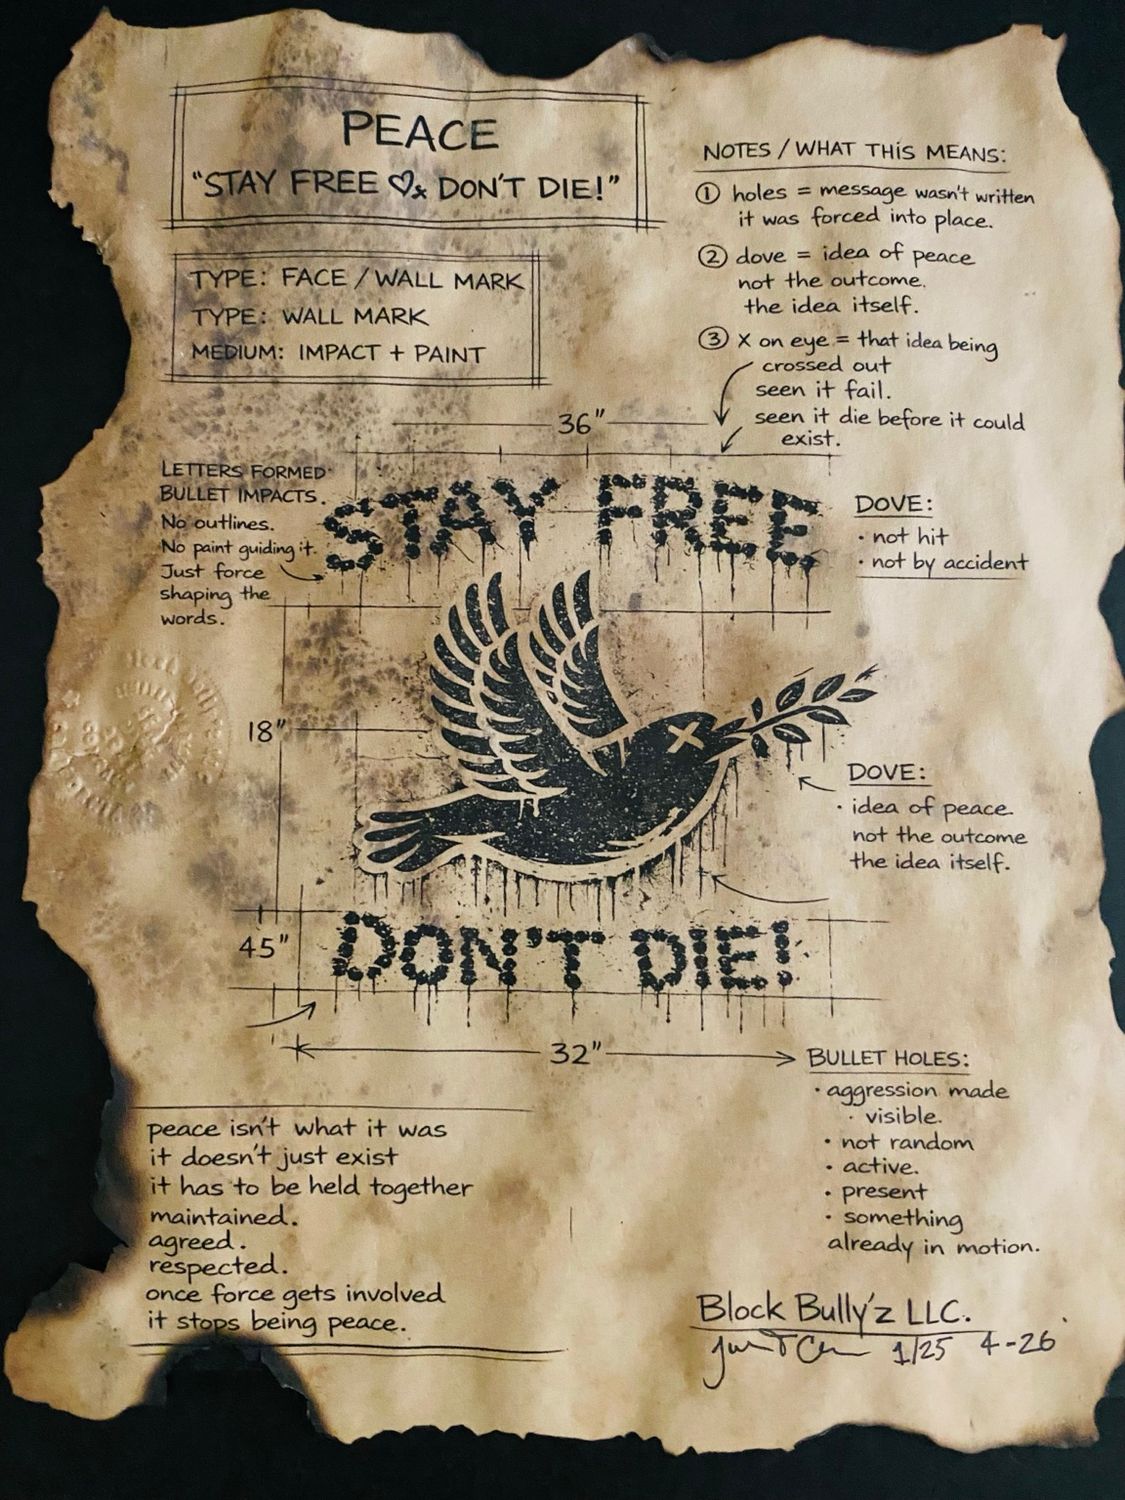 PEACE
"STAY FREE ♡x DON'T DIE!"
TYPE: FACE / WALL MARK
TYPE: WALL MARK
MEDIUM: IMPACT + PAINT
NOTES / WHAT THiS MEANS:
① holes = message wasn't written
it was forced into place.
② dove = idea of peace
not the outcome.
the idea itself.
③ X on eye = that idea being
crossed out
seen it fail.
seen it die before it could
exist.
36"
LETTERS FORMED
BULLET IMPACTS.
No outlines.
No paint guiding it.
Just force
shaping the
words.
STAY FREE
DOVE:
· not hit
· not by accident
18"
DOVE:
· idea of peace.
not the outcome
the idea itself.
45"
DON'T DIE!
32"
BULLET HOLES:
· aggression made
· visible.
· not random
· active.
· present
· something
already in motion.
peace isn't what it was
it doesn't just exist
it has to be held together
maintained.
agreed.
respected.
once force gets involved
it stops being peace.
Block Bully'z LLC.
1/25 4-26